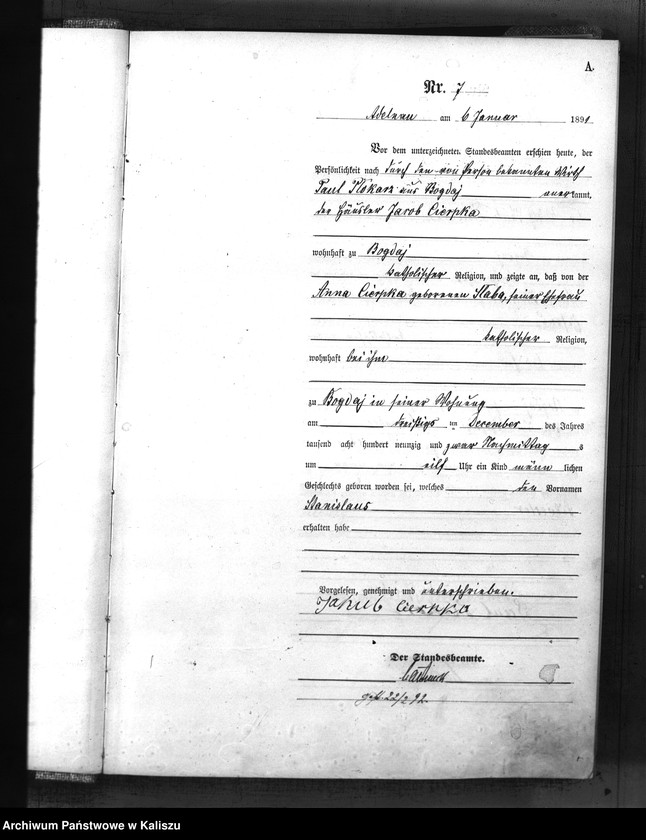 A.
Nr. 7
Adelnau am 6 Januar 1891
Vor dem unterzeichneten Standesbeamten erschien heute, der
Persönlichkeit nach durch den von Person bekannten Wirth
Paul Kokarz aus Bogdaj anerkannt,
der Häusler Jacob Cierpka
wohnhaft zu Bogdaj
katholischer Religion, und zeigte an, daß von der
Anna Cierpka geborenen Slaba, seiner Ehefrau
katholischer Religion,
wohnhaft bei ihm
zu Bogdaj in seiner Wohnung
am dreißigsten December des Jahres
tausend acht hundert neunzig und zwar Nachmittags
um eilf Uhr ein Kind männlichen
Geschlechts geboren worden sei, welches den Vornamen
Stanislaus
erhalten habe
Vorgelesen, genehmigt und unterschrieben.
Jakub Cierpka
Der Standesbeamte.
22/2 92.
Archiwum Państwowe w Kaliszu